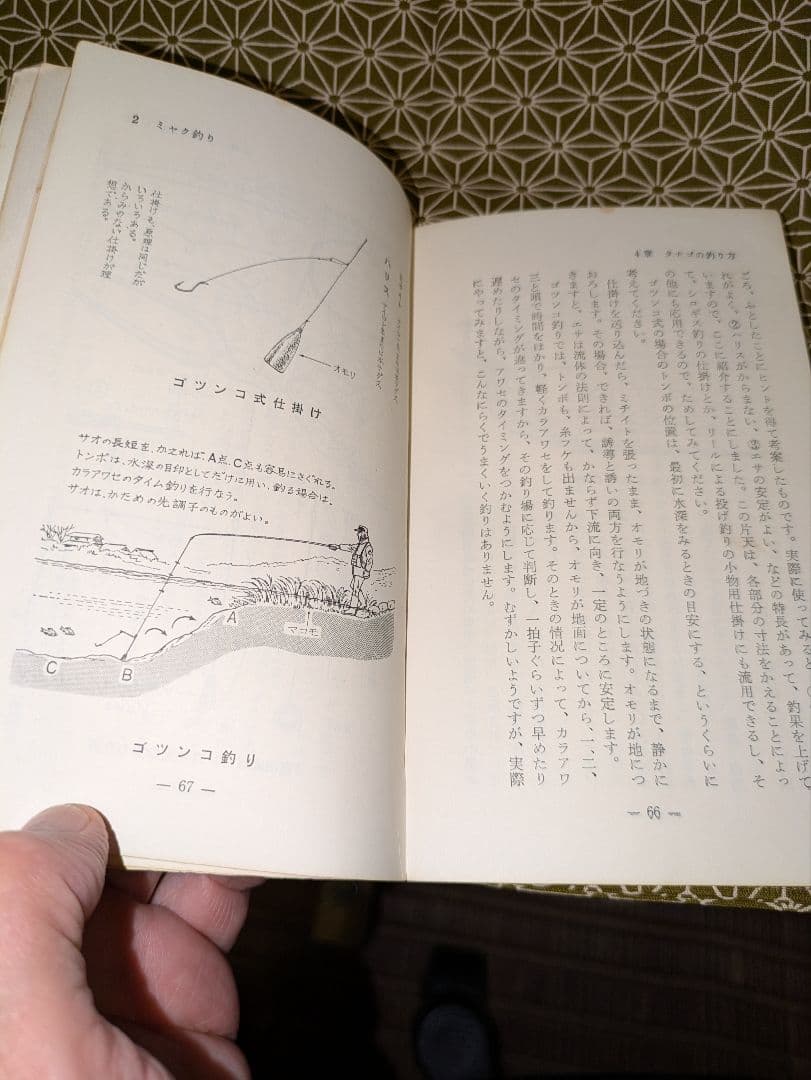 4章 タナゴの釣り方
ころ、ふとしたことにヒントを得て考案したものです。実際に使ってみると、
れがよく、②ハリスがからまない、③エサの安定がよい、などの特長があって、釣果を上げて
いますので、ここに紹介することにしました。この片天は、各部分の寸法をかえることによっ
て、シロギス釣りの仕掛けとか、リールによる投げ釣りの小物用仕掛けにも流用できるし、そ
の他にも応用できるので、ためしてみてください。
ゴツンコ式の場合のトンボの位置は、最初に水深をみるときの目安にする、というくらいに
考えてください。
仕掛けを送り込んだら、ミチイトを張ったまま、オモリが地づきの状態になるまで、静かに
おろします。その場合、できれば、誘導と誘いの両方を行なうようにします。オモリが地につ
きますと、エサは流体の法則によって、かならず下流に向き、一定のところに安定します。
ゴツンコ釣りでは、トンボも、糸フケも出ませんから、オモリが地面についてから、一、二、
三と頭で時間をはかり、軽くカラアワセをして釣ります。そのときの情況によって、カラアワ
セのタイミングが違ってきますから、その釣り場に応じて判断し、一拍子ぐらいずつ早めたり
遅めたりしながら、アワセのタイミングをつかむようにします。むずかしいようですが、実際
にやってみますと、こんなにらくでうまくいく釣りはありません。
— 66 —
2 ミャク釣り
ハリス
オモリ
仕掛けも、原理は同じだが
いろいろある。
からみのない仕掛けが理
想である。
ゴツンコ式仕掛け
サオの長短を、かえれば、A点、C点も容易にさぐれる。
トンボは、水深の目印としてだけに用い、釣る場合は、
カラアワセのタイム釣りを行なう。
サオは、かための先調子のものがよい。
A
マコモ
B
C
ゴツンコ釣り
— 67 —